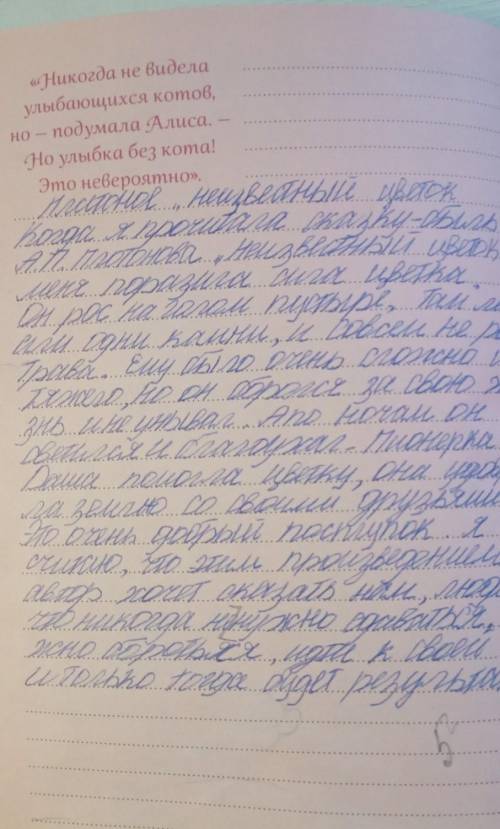 «Никогда не видела
улыбающихся котов,
но – подумала Алиса. –
Но улыбка без кота!
Это невероятно».
Платонов „неизвестный цветок
Когда я прочитала сказку-быль
А.П. Платонова „Неизвестный цветок
меня поразила сила цветка.
Он рос на голом пустыре, Там ле
али одни камни, и совсем не р
Трава. Ему было очень сложно и
тяжего, но он боролся за свою ж
знь и не унывал. А по ночам он
светился и благоухал. Пионерка
Даша помогла цветку, она удоб
ла землю со своими друзьями
Это очень добрый поступок. Я
считаю, что этим произведением
автор хочет сказать нам, людя
что никогда не нужно сдаваться,
жно бороться, идти к своей
и только тогда будет результа
5